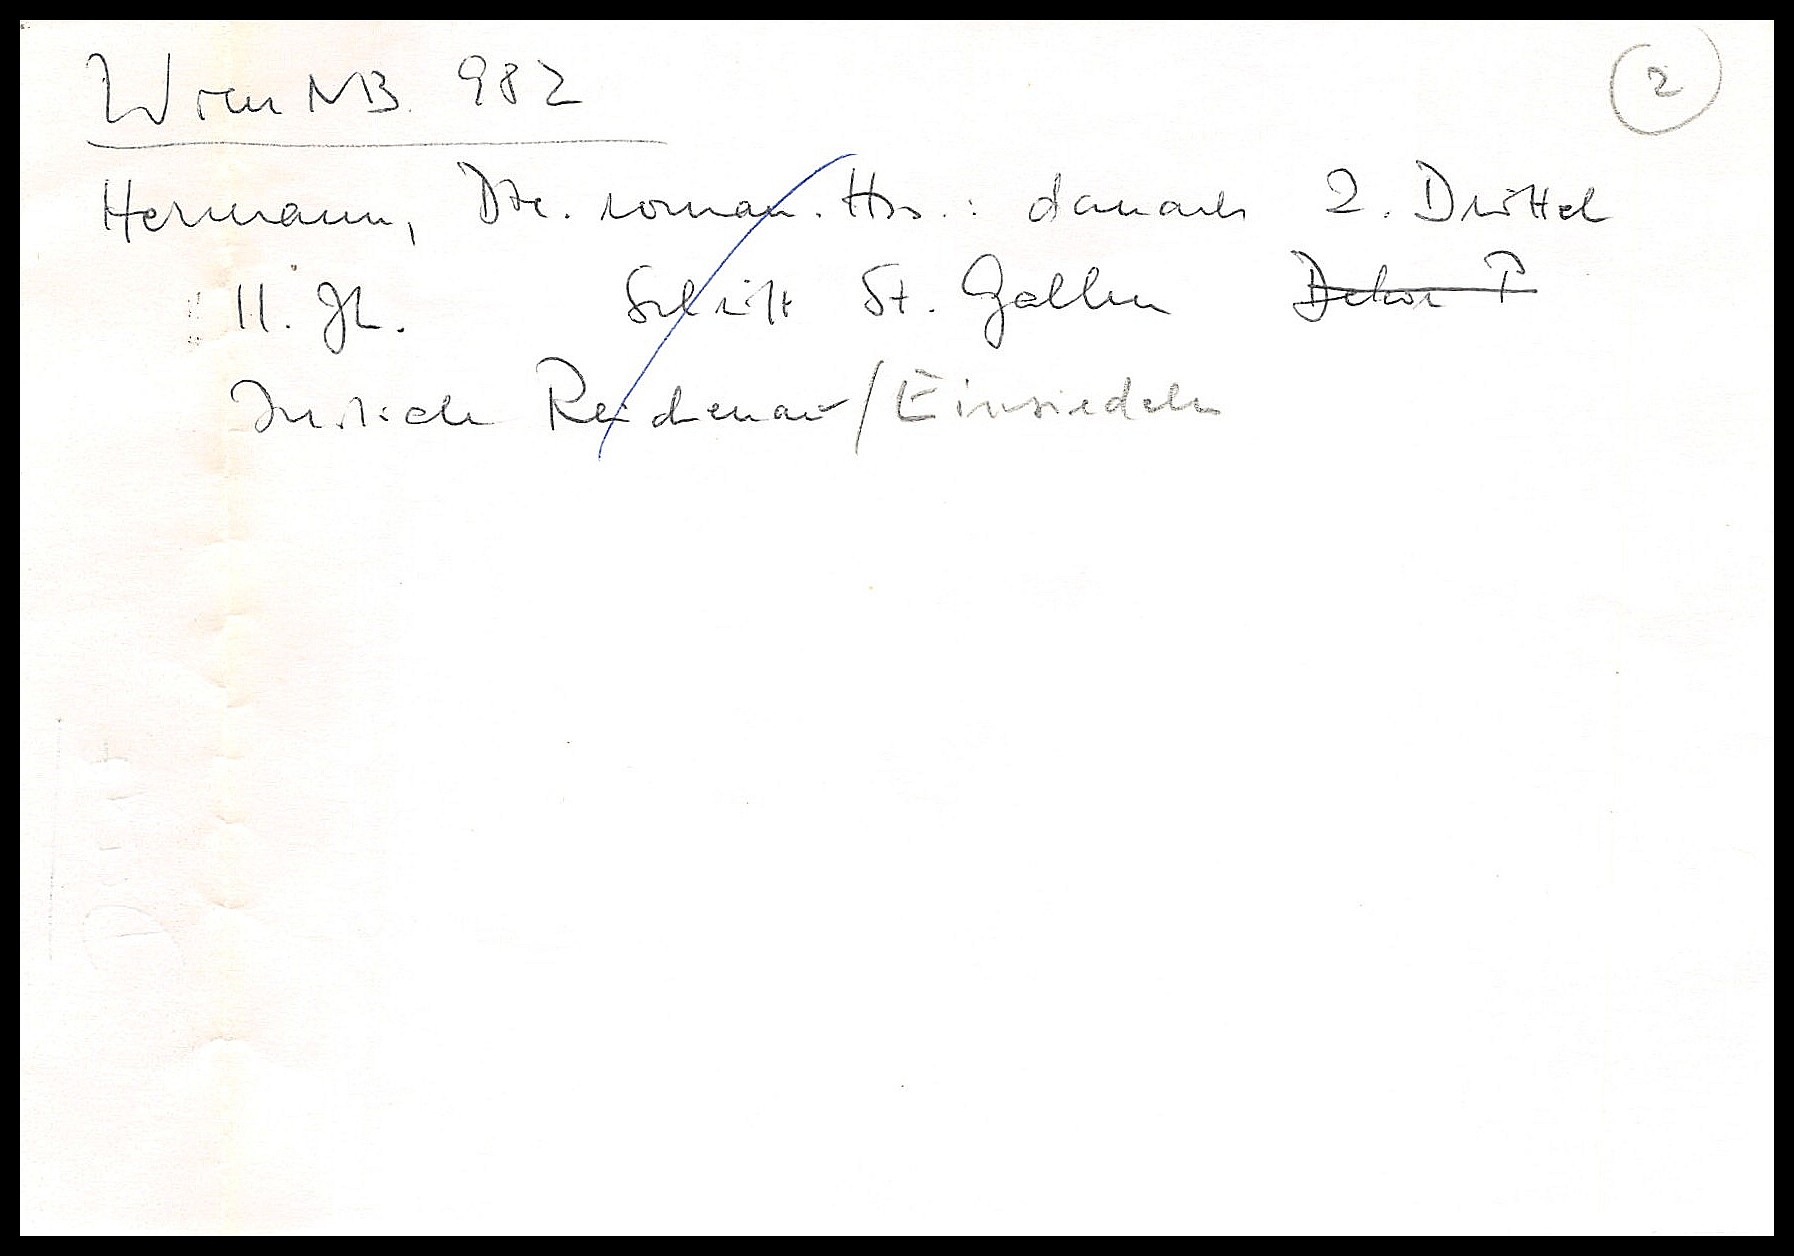 Wien NB. 982
2
Hermann, Dte. roman. Hss.: danach 2. Drittel
11. Jh. Schrift St. Gallen Dekor P
Initiale Reichenau/Einsiedeln